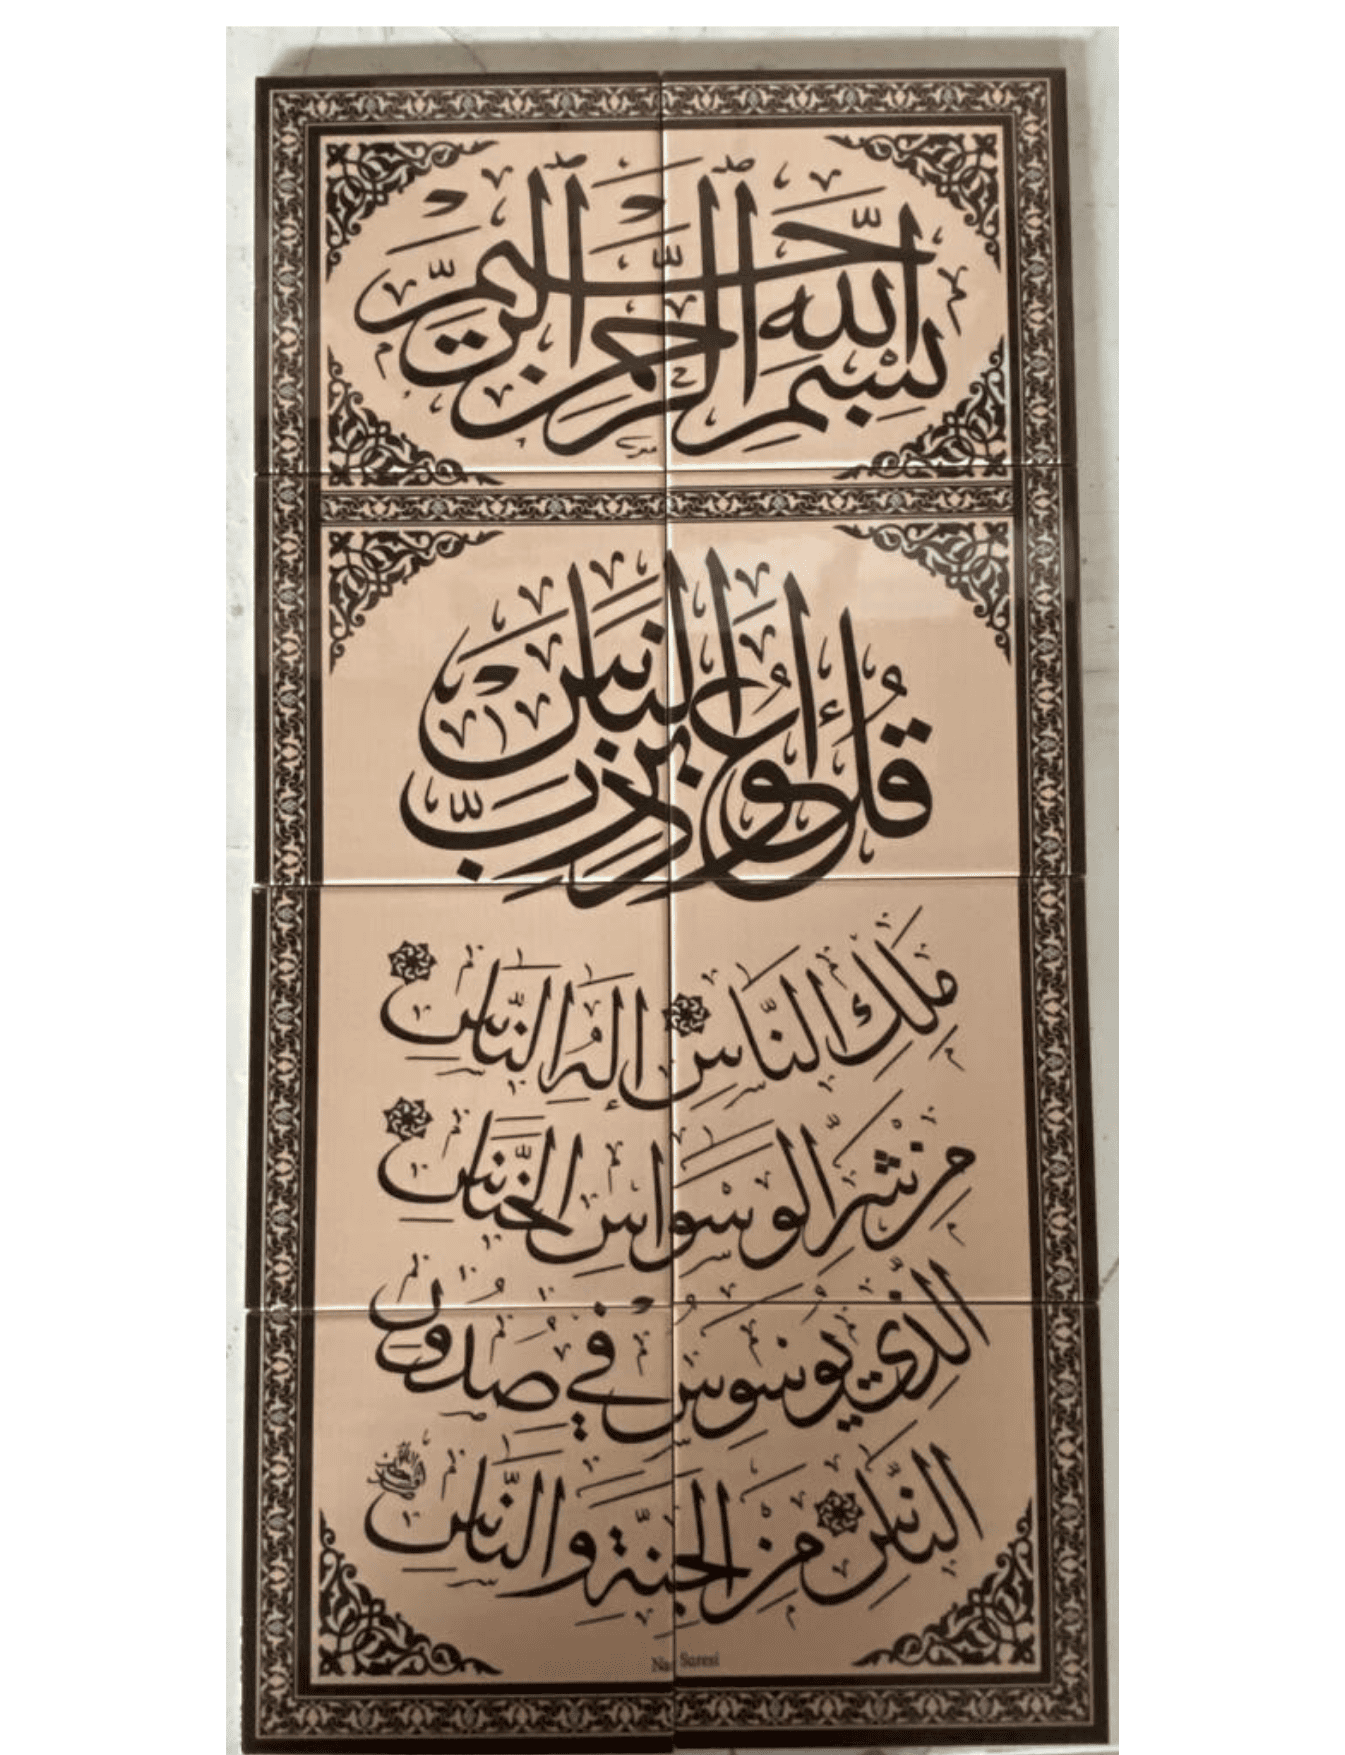 بِسْمِ اللهِ الرَّحْمٰنِ الرَّحِيمِ
قُلْ أَعُوذُ بِرَبِّ النَّاسِ
مَلِكِ النَّاسِ إِلٰهِ النَّاسِ
مِنْ شَرِّ الْوَسْوَاسِ الْخَنَّاسِ
الَّذِي يُوَسْوِسُ فِي صُدُورِ
النَّاسِ مِنَ الْجِنَّةِ وَالنَّاسِ
Suresi